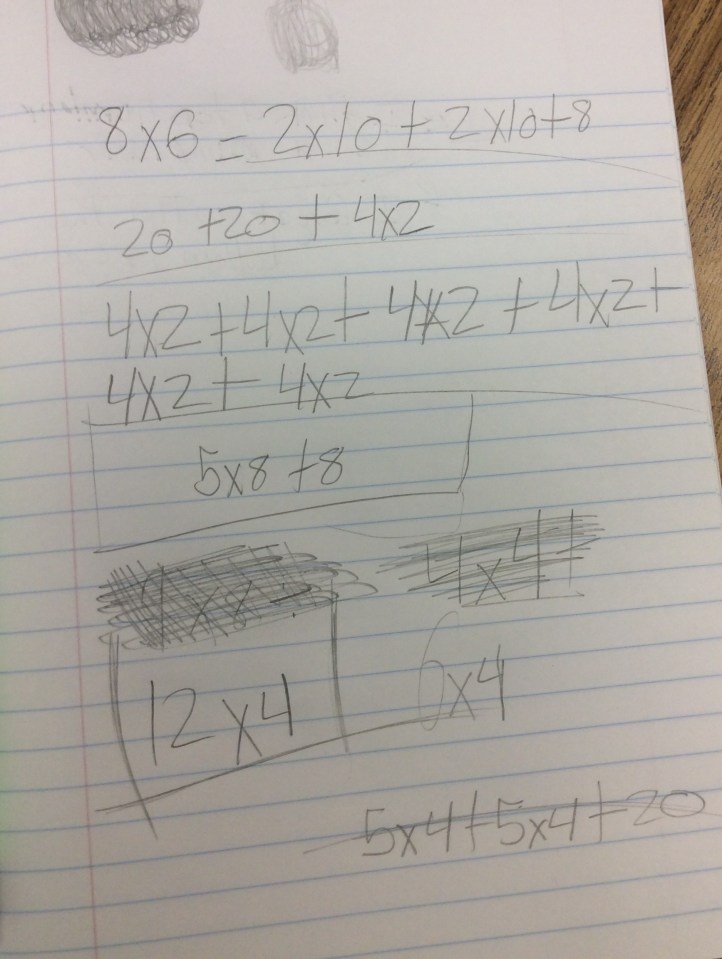 8x6 = 2x10 + 2x10+8
20 +20 + 4x2
4x2 +4x2+ 4x2 + 4x2+
4x2 + 4x2
5x8 +8
4x4+
12 x4
6x4
5x4+5x4+20